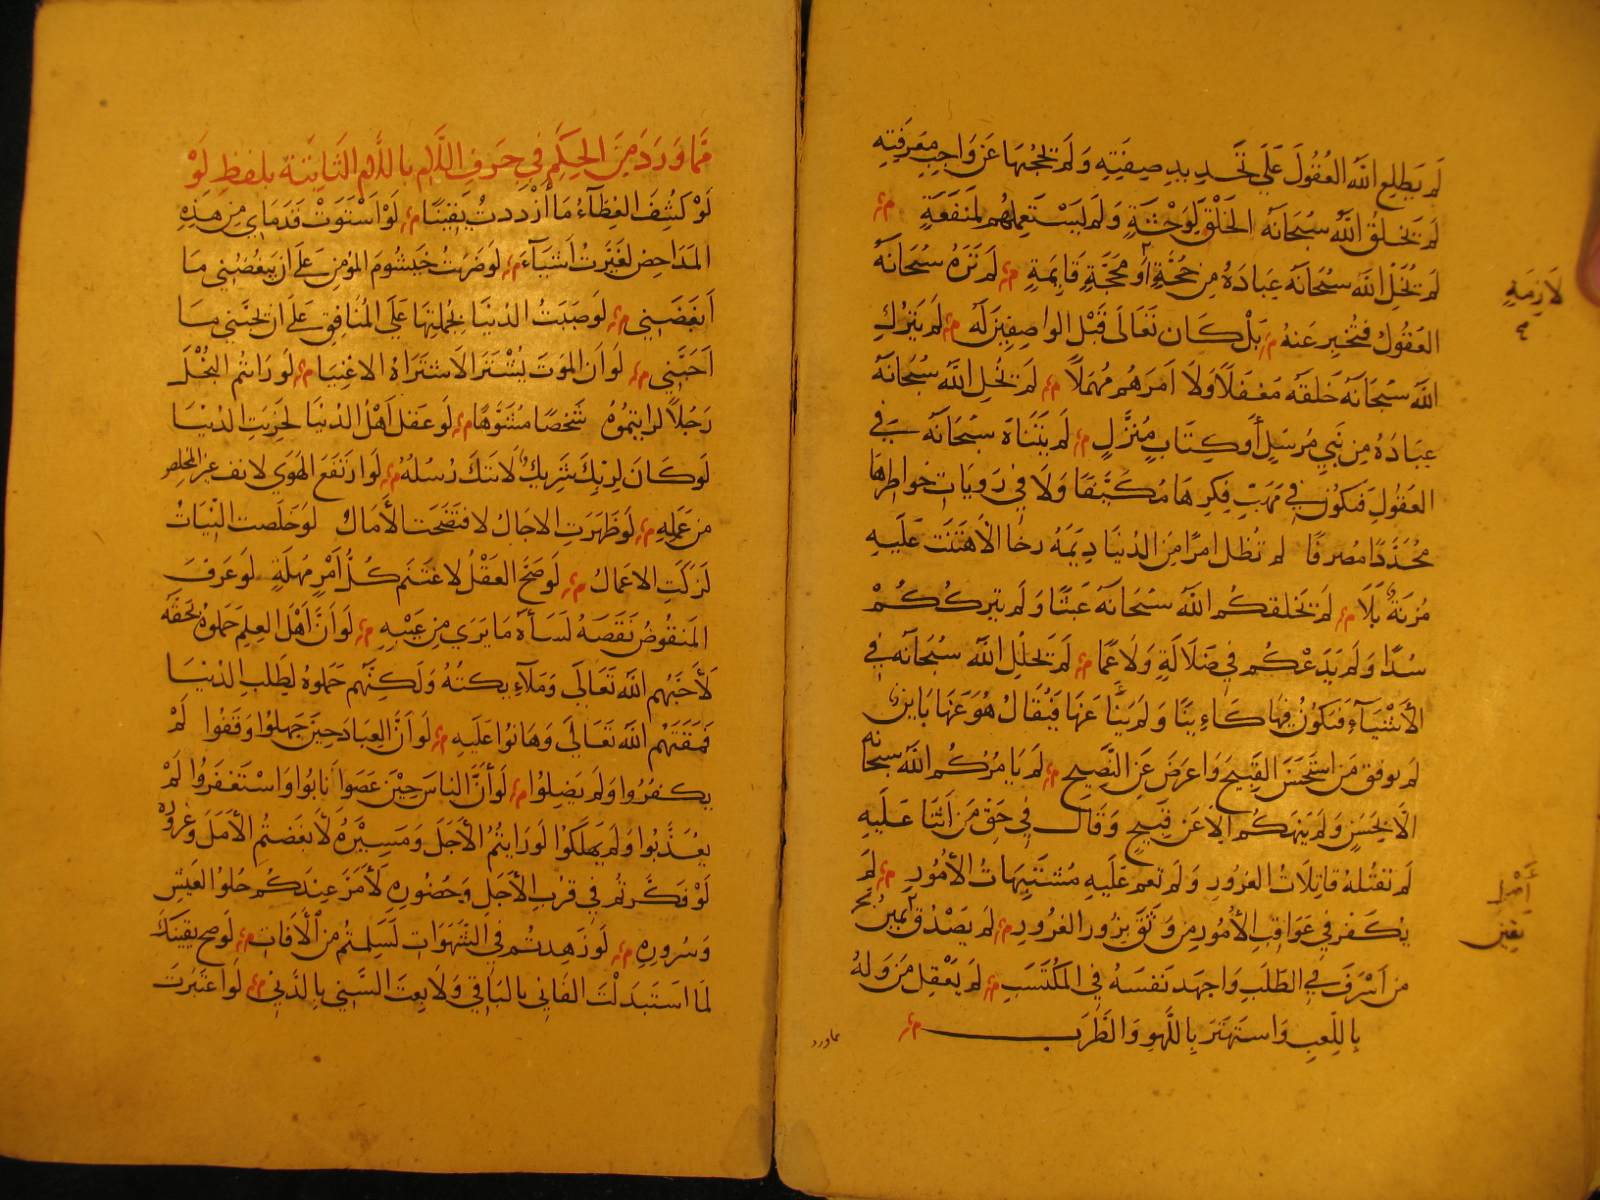 لم يطلع الله العقول على تحديد صفته ولم يحجبها عن واجب معرفته
لم يخلق الله سبحانه الخلق لوحشة ولم يستعملهم لمنفعة
لم يخل الله سبحانه عباده من حجة أو محجة قايمة لم تره سبحانه
لازمة
العقول فتخبر عنه بل كان تعالى قبل الواصفين له لم يترك
الله سبحانه خلقه مغفلا ولا امرهم مهملا لم يخل الله سبحانه
عباده من نبي مرسل أو كتاب منزل لم يتناه سبحانه في
العقول فيكون في مهب فكرها مكيفا ولا في رويات خواطرها
محددا مصرفا لم تظل امرا من الدنيا ديمه رخا الا هتنت عليه
مزنة بلا لم يخلقكم الله سبحانه عبثا ولم يترككم
سدا ولم يدعكم في ضلالة ولا عما لم يحلل الله سبحانه في
الأشياء فيكون فيها كاينا ولم ينأ عنها فيقال هو عنها باين
لم يوفق من استحسن القبيح واعرض عن النصيح لم يامركم الله سبحانه
الا بحسن ولم ينهكم الا عن قبيح وقال في حق من اثنا عليه
لم تقتله قاتلات الغرور ولم تعم عليه مشتبهات الأمور لم
يكفر في عواقب الأمور من وثق بزور الغرور لم يصدق يقين
من اسرف في الطلب واجهد نفسه في المكتسب لم يعقل من وله
باللعب واستهتر باللهو والطرب
مما ورد
مما ورد من الحكم في حرف اللام باللام الثابتة بلفظ لو
لو كشف الغطاء ما ازددت يقينا لو استوت قدماي من هذه
المداحض لغيرت أشياء لو ضربت خيشوم المؤمن على ان يبغضني ما
ابغضني لو صببت الدنيا بجملتها على المنافق على ان يحبني ما
احبني لو ان الموت يشترا لاشتراه الاغنيا لو رايتم البخل
رجلا لرايتموه شخصا مشوها لو عقل اهل الدنيا لخربت الدنيا
لو كان لربك شريك لاتتك رسله لو ارتفع الهوى لانف غير المخلص
من عمله لو ظهرت الاجال لافتضحت الأمال لو خلصت النيات
لزكت الاعمال لو صح العقل لاغتنم كل أمر مهلة لو عرف
المنقوص نقصه لساه ما يرى من عيبه لو أن أهل العلم حملوه بحقه
لأحبهم الله تعالى وملائكته ولكنهم حملوه لطلب الدنيا
فمقتهم الله تعالى وهانوا عليه لو أن العباد حين جهلوا وقفوا لم
يكفروا ولم يضلوا لو أن الناس حين عصوا انابوا واستغفروا لم
يعذبوا ولم يهلكوا لو رايتم الأجل ومسيره لأبغضتم الأمل وغروره
لو فكرتم في قرب الأجل وحضوره لأمر عندكم حلو العيش
وسروره لو زهدتم في الشهوات لسلمتم من الأفات لو صح يقينك
لما استبدلت الفاني بالباقي ولا بعت السني بالدني لو اعتبرت